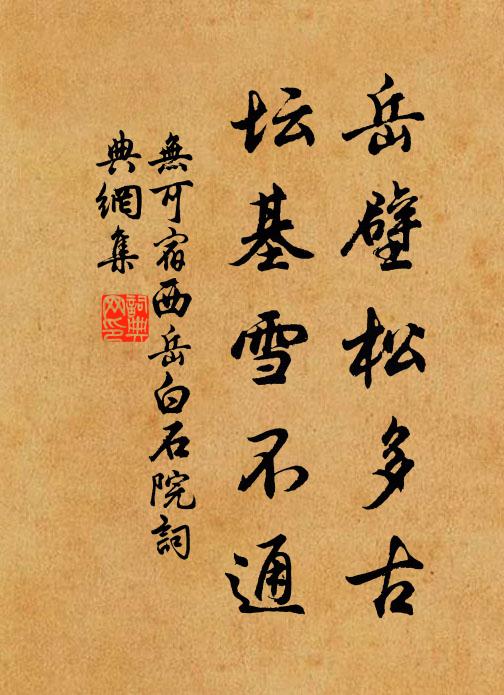 岳壁松多古
坛基雪不通
無可宿西岳白石院詞
典網集
詞典网印